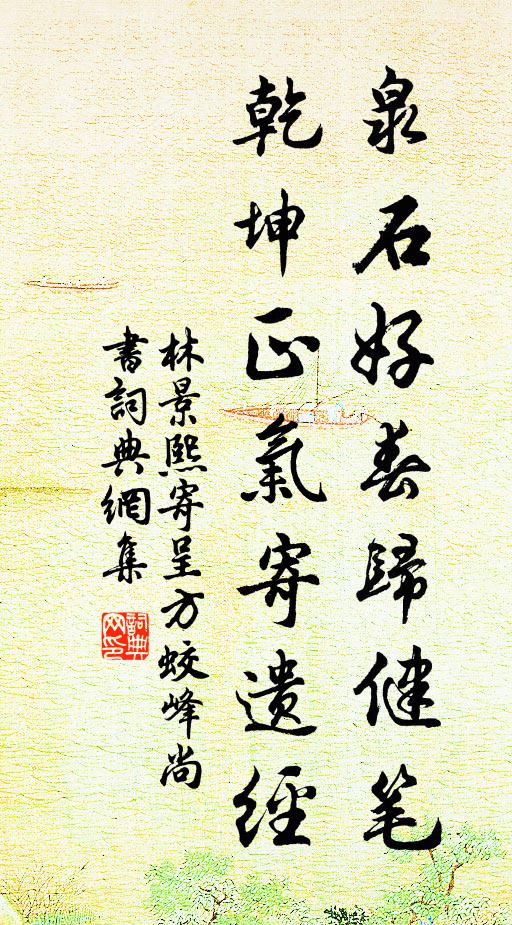 泉石好春歸健笔
乾坤正氣寄遺經
林景熙寄呈方蛟峰尚
書詞典網集
詞典网印